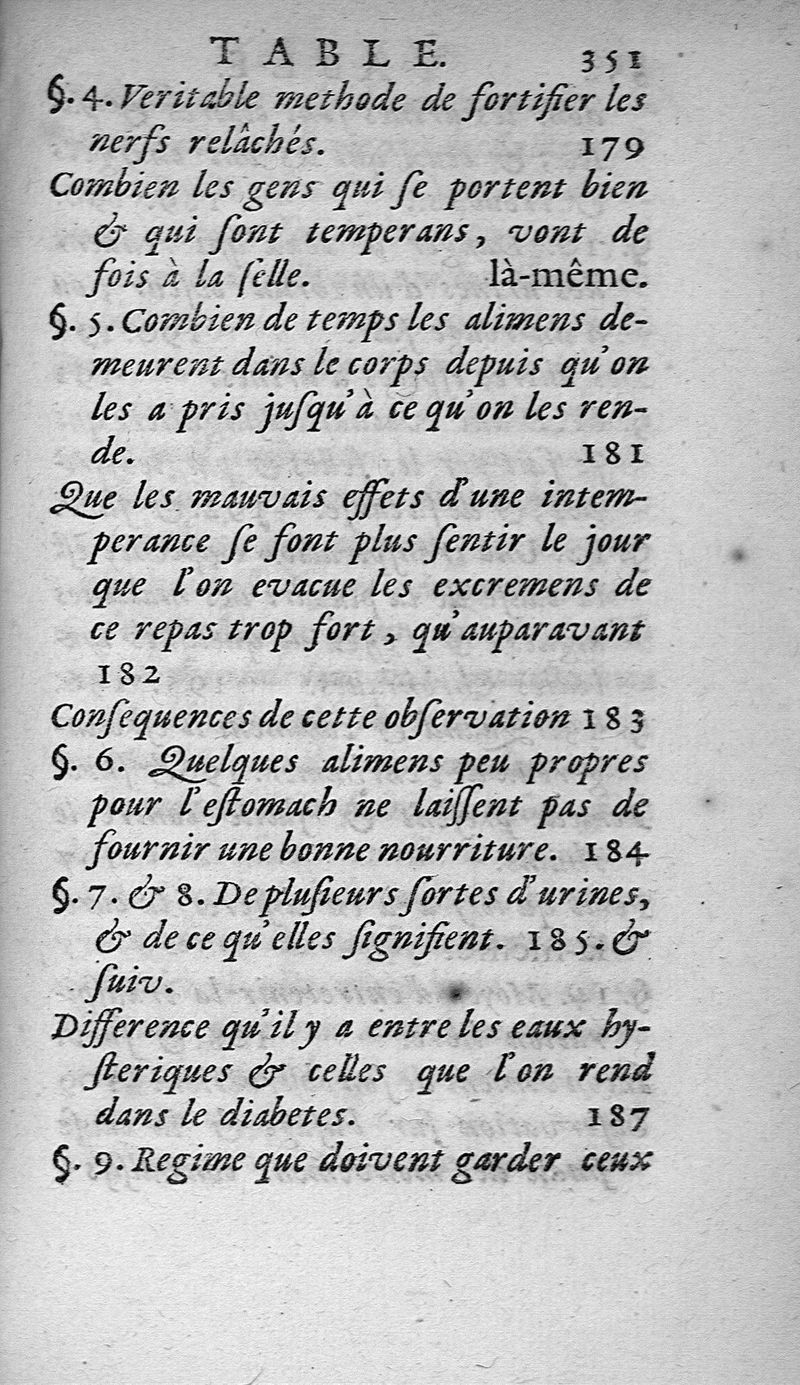 TABLE. 351
§. 4. Veritable methode de fortifier les
nerfs relâchés. 179
Combien les gens qui ſe portent bien
& qui ſont temperans, vont de
fois à la ſelle. là-même.
§. 5. Combien de temps les alimens de-
meurent dans le corps depuis qu'on
les a pris juſqu'à ce qu'on les ren-
de. 181
Que les mauvais effets d'une intem-
perance ſe font plus ſentir le jour
que l'on evacue les excremens de
ce repas trop fort, qu'auparavant
182
Conſequences de cette obſervation 183
§. 6. Quelques alimens peu propres
pour l'eſtomach ne laiſſent pas de
fournir une bonne nourriture. 184
§. 7. & 8. De pluſieurs ſortes d'urines,
& de ce qu'elles ſignifient. 185. &
ſuiv.
Difference qu'il y a entre les eaux hy-
ſteriques & celles que l'on rend
dans le diabetes. 187
§. 9. Regime que doivent garder ceux